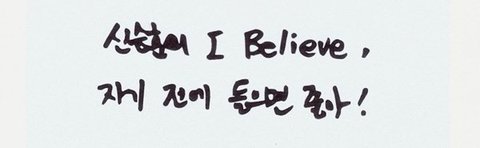 신승훈의 I Believe,
자기 전에 들으면 좋아!